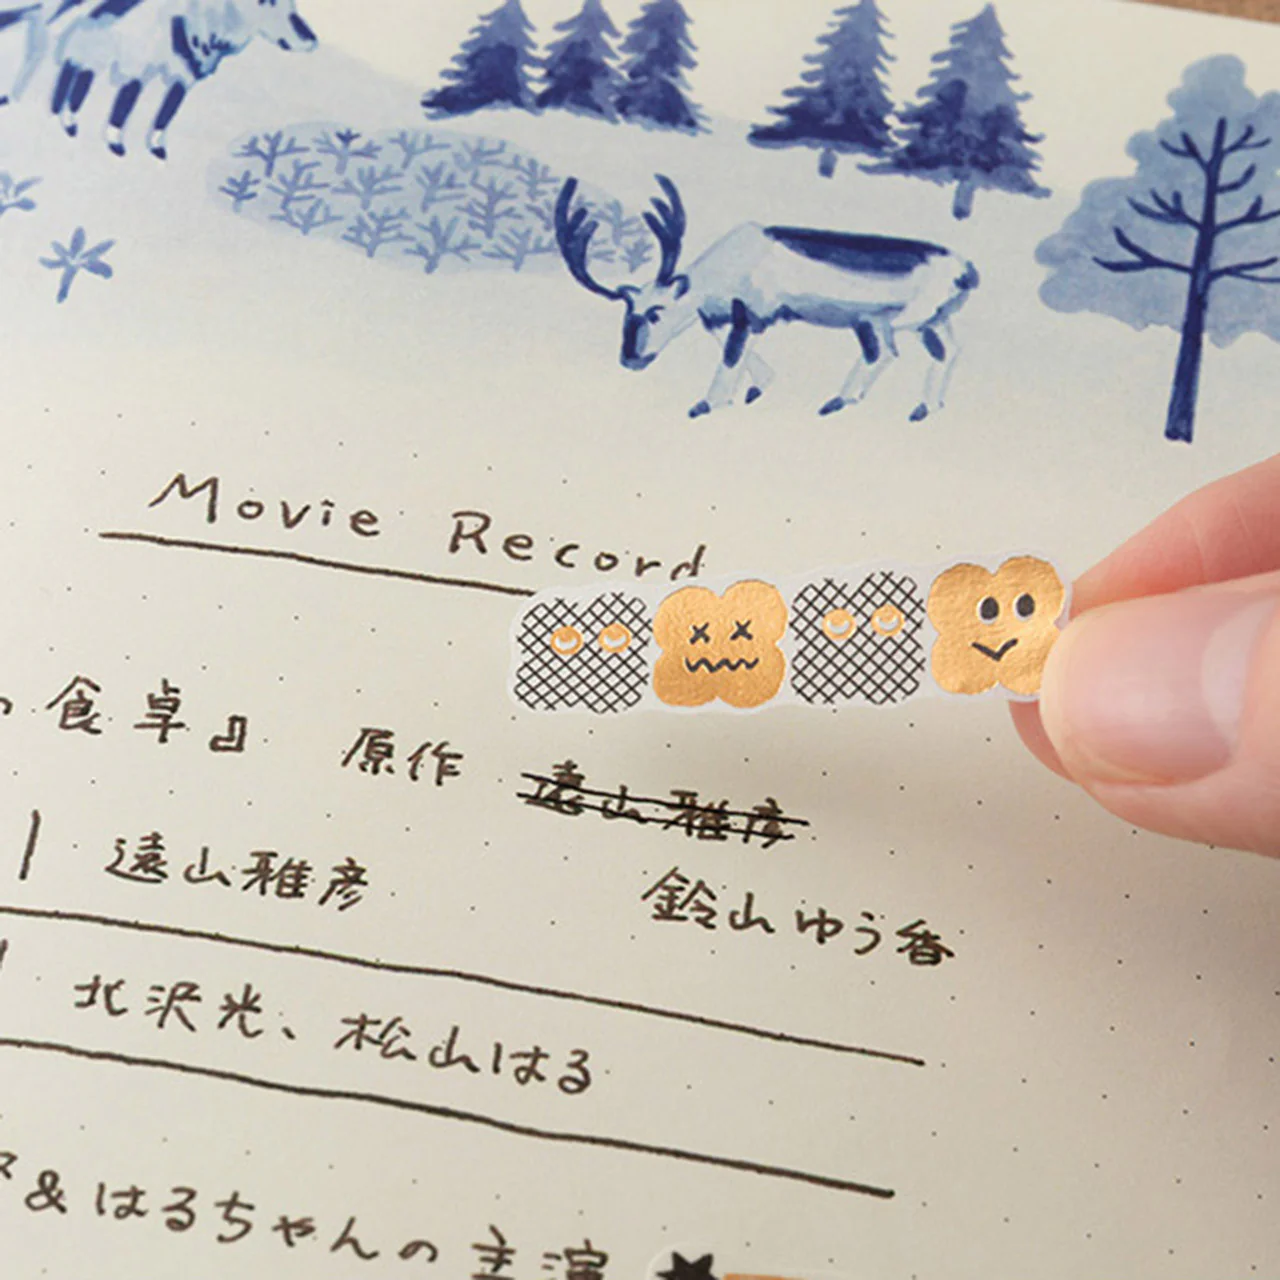 Movie Record
の食卓』 原作 遠山雅彦
遠山雅彦 鈴山ゆう香
北沢光、松山はる
&はるちゃんの主演